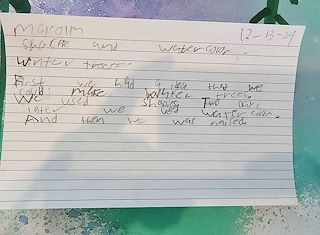 Malcolm 12-13-24
Sharpie and watercolor.
Winter trees.
First we had a idea that we
could make winter trees.
We used Shapies. Two days
later we used water color.
And then we was finised.